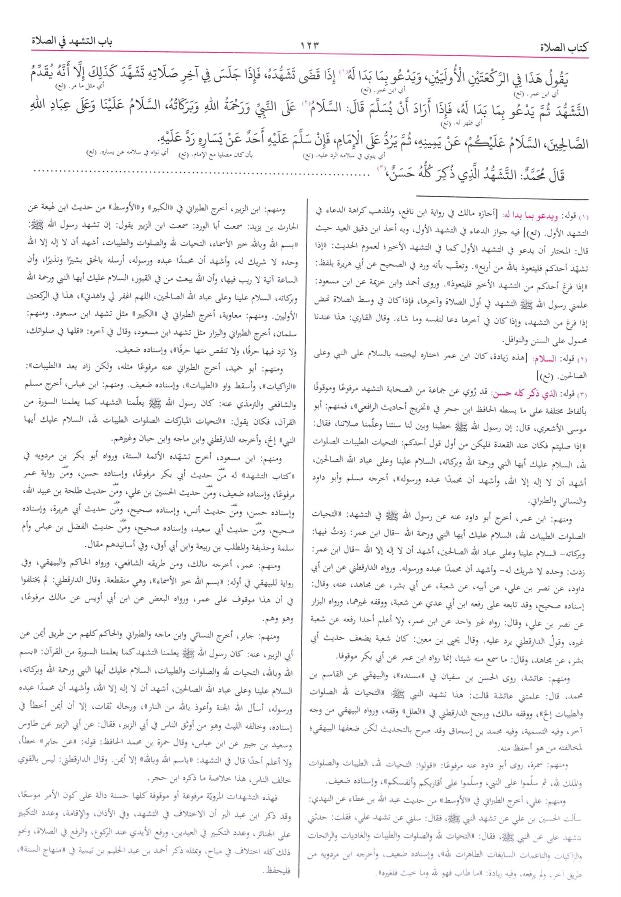 كتاب الصلاة
١٢٣
باب التشهد في الصلاة
يَقُولُ هَذَا فِي الرَّكْعَتَيْنِ الْأُولَيَيْنِ، وَيَدْعُو بِمَا بَدَا لَهُ(١) إِذَا قَضَى تَشَهُّدَهُ، فَإِذَا جَلَسَ فِي آخِرِ صَلَاتِهِ تَشَهَّدَ كَذَلِكَ إِلَّا أَنَّهُ يُقَدِّمُ
أي ابن عمر. (تع) أي مثل ما مر. (تع)
التَّشَهُّدَ ثُمَّ يَدْعُو بِمَا بَدَا لَهُ، فَإِذَا أَرَادَ أَنْ يُسَلِّمَ قَالَ: السَّلَامُ(٢) عَلَى النَّبِيِّ وَرَحْمَةُ اللهِ وَبَرَكَاتُهُ، السَّلَامُ عَلَيْنَا وَعَلَى عِبَادِ اللهِ
أي ظهر له. (تع) أي ابن عمر. (تع)
الصَّالِحِينَ، السَّلَامُ عَلَيْكُمْ، عَنْ يَمِينِهِ، ثُمَّ يَرُدُّ عَلَى الْإِمَامِ، فَإِنْ سَلَّمَ عَلَيْهِ أَحَدٌ عَنْ يَسَارِهِ رَدَّ عَلَيْهِ.
أي ينوي في سلامه الرد عليه. (تع) بأن كان مصليا مع الإمام. (تع) أي نواه في سلامه عن يساره. (تع)
قَالَ مُحَمَّدٌ: التَّشَهُّدُ الَّذِي ذُكِرَ كُلُّهُ حَسَنٌ(٣)،
(١) قوله: ويدعو بما بدا له: [أجازه مالك في رواية ابن نافع، والمذهب كراهة الدعاء في
التشهد الأول. (تع)] فيه جواز الدعاء في التشهد الأول، وبه أخذ ابن دقيق العيد حيث
قال: المختار أن يدعو في التشهد الأول كما في التشهد الأخير؛ لعموم الحديث: «إذا
تشهد أحدكم فليتعوذ بالله من أربع». وتعقّب بأنه ورد في الصحيح عن أبي هريرة بلفظ:
«إذا فرغ أحدكم من التشهد الأخير فليتعوذ». وروى أحمد وابن خزيمة عن ابن مسعود:
علمني رسول الله ﷺ التشهد في أول الصلاة وآخرها، فإذا كان في وسط الصلاة نهض
إذا فرغ من التشهد، وإذا كان في آخرها دعا لنفسه وما شاء. وقال القاري: هذا عندنا
محمول على السنن والنوافل.
(٢) قوله: السلام: [هذه زيادة، كان ابن عمر اختاره ليختمه بالسلام على النبي وعلى
الصالحين. (تع)]
(٣) قوله: الذي ذكر كله حسن: قد رُوي عن جماعة من الصحابة التشهد مرفوعًا وموقوفًا
بألفاظ مختلفة على ما بسطه الحافظ ابن حجر في «تخريج أحاديث الرافعي»، فمنهم: أبو
موسى الأشعري، قال: إن رسول الله ﷺ خطبنا وبين لنا سنتنا وعلّمنا صلاتنا، فقال:
«إذا صليتم فكان عند القعدة فليكن من أول قول أحدكم: التحيات الطيبات الصلوات
لله، السلام عليك أيها النبي ورحمة الله وبركاته، السلام علينا وعلى عباد الله الصالحين،
أشهد أن لا إله إلا الله، وأشهد أن محمدًا عبده ورسوله»، أخرجه مسلم وأبو داود
والنسائي والطبراني.
ومنهم: ابن عمر، أخرج أبو داود عنه عن رسول الله ﷺ في التشهد: «التحيات
الصلوات الطيبات لله، السلام عليك أيها النبي ورحمة الله -قال ابن عمر: زدتُ فيها:
وبركاته- السلام علينا وعلى عباد الله الصالحين، أشهد أن لا إله إلا الله -قال ابن عمر:
زدت: وحده لا شريك له- وأشهد أن محمدًا عبده ورسوله. ورواه الدارقطني عن ابن أبي
داود، عن نصر بن علي، عن أبيه، عن شعبة، عن أبي بشر، عن مجاهد، عنه، وقال:
إسناده صحيح، وقد تابعه على رفعه ابن أبي عدي عن شعبة، ووقفه غيرهما، ورواه البزار
عن نصر بن علي، وقال: رواه غير واحد عن ابن عمر، ولا أعلم أحدا رفعه عن شعبة
غيره، وقول الدارقطني يرد عليه. وقال يحيى بن معين: كان شعبة يضعف حديث أبي
بشر، عن مجاهد، وقال: ما سمع منه شيئا، إنما رواه ابن عمر عن أبي بكر موقوفا.
ومنهم: عائشة، روى الحسن بن سفيان في «مسنده»، والبيهقي عن القاسم بن
محمد، قال: علمتني عائشة قالت: هذا تشهد النبي ﷺ «التحيات لله الصلوات
والطيبات إلخ»، ووقفه مالك، ورجح الدارقطني في «العلل» وقفه، ورواه البيهقي من وجه
آخر، وفيه التسمية، وفيه محمد بن إسحاق وقد صرح بالتحديث لكن ضعفها البيهقي؛
لمخالفته من هو أحفظ منه.
ومنهم: سمرة، روى أبو داود عنه مرفوعًا: «قولوا: التحيات لله، والطيبات والصلوات
والملك لله، ثم سلّموا على النبي، وسلّموا على أقاربكم وأنفسكم»، وإسناده ضعيف.
ومنهم: علي، أخرج الطبراني في «الأوسط» من حديث عبد الله بن عطاء عن النهدي:
سألت الحسين بن علي عن تشهد النبي ﷺ، فقال: سلني عن تشهد علي، فقلت: حدثني
بتشهد علي عن النبي ﷺ، فقال: «التحيات لله والصلوات والطيبات والغاديات والرائحات
والزاكيات والناعمات السابغات الطاهرات لله»، وإسناده ضعيف، وأخرجه ابن مردويه من
طريق آخر، ولم يرفعه، وفيه زيادة: «ما طاب فهو لله وما خبث فلغيره».
ومنهم: ابن الزبير، أخرج الطبراني في «الكبير» و«الأوسط» من حديث ابن لهيعة عن
الحارث بن يزيد: سمعت أبا الورد: سمعت ابن الزبير يقول: إن تشهد رسول الله ﷺ:
«بسم الله وبالله خير الأسماء، التحيات لله والصلوات والطيبات، أشهد أن لا إله إلا الله
وحده لا شريك له، وأشهد أن محمدًا عبده ورسوله، أرسله بالحق بشيرًا ونذيرًا، وأن
الساعة آتية لا ريب فيها، وأن الله يبعث من في القبور، السلام عليك أيها النبي ورحمة الله
وبركاته، السلام علينا وعلى عباد الله الصالحين، اللهم اغفر لي واهدني»، هذا في الركعتين
الأوليين. ومنهم: معاوية، أخرج الطبراني في «الكبير» مثل تشهد ابن مسعود. ومنهم:
سلمان، أخرج الطبراني والبزار مثل تشهد ابن مسعود، وقال في آخره: «قلها في صلواتك،
ولا تزد فيها حرفًا، ولا تنقص منها حرفًا»، وإسناده ضعيف.
ومنهم: أبو حميد، أخرج الطبراني عنه مرفوعًا مثله، ولكن زاد بعد «الطيبات»:
«الزاكيات»، وأسقط واو «الطيبات»، وإسناده ضعيف. ومنهم: ابن عباس، أخرج مسلم
والشافعي والترمذي عنه: كان رسول الله ﷺ يعلمنا التشهد كما يعلمنا السورة من
القرآن، فكان يقول: «التحيات المباركات الصلوات الطيبات لله، السلام عليك أيها
النبي» إلخ، وأخرجه الدارقطني وابن ماجه وابن حبان وغيرهم.
ومنهم: ابن مسعود، أخرج تشهّده الأئمة الستة، ورواه أبو بكر بن مردويه في
«كتاب التشهد» له من حديث أبي بكر مرفوعًا، وإسناده حسن، ومن رواية عمر
مرفوعًا، وإسناده ضعيف، ومن حديث الحسين بن علي، ومن حديث طلحة بن عبيد الله،
وإسناده حسن، ومن حديث أنس، وإسناده صحيح، ومن حديث أبي هريرة، وإسناده
صحيح، ومن حديث أبي سعيد، وإسناده صحيح، ومن حديث الفضل بن عباس وأم
سلمة وحذيفة والمطلب بن ربيعة وابن أبي أوفى، وفي أسانيدهم مقال.
ومنهم: عمر، أخرجه مالك، ومن طريقه الشافعي، ورواه الحاكم والبيهقي، وفي
رواية للبيهقي في أوله: «بسم الله خير الأسماء»، وهي منقطعة. وقال الدارقطني: لم يختلفوا
في أن هذا موقوف على عمر، ورواه البعض عن ابن أبي أويس عن مالك مرفوعًا،
وهو وهم.
ومنهم: جابر، أخرج النسائي وابن ماجه والطبراني والحاكم كلهم من طريق أيمن عن
أبي الزبير، عنه: كان رسول الله ﷺ يعلمنا التشهد كما يعلمنا السورة من القرآن: «بسم
الله وبالله، التحيات لله والصلوات والطيبات، السلام عليك أيها النبي ورحمة الله وبركاته،
السلام علينا وعلى عباد الله الصالحين، أشهد أن لا إله إلا الله، وأشهد أن محمدًا عبده
ورسوله، أسأل الله الجنة وأعوذ بالله من النار»، ورجاله ثقات، إلا أن أيمن أخطأ في
إسناده، وخالفه الليث وهو من أوثق الناس في أبي الزبير، فقال: عن أبي الزبير عن طاوس
وسعيد بن جبير عن ابن عباس، وقال حمزة بن محمد الحافظ: قوله: «عن جابر» خطأ،
ولا أعلم أحدًا قال في التشهد: «باسم الله وبالله» إلا أيمن. وقال الدارقطني: ليس بالقوي
خالف الناس، هذا خلاصة ما ذكره ابن حجر.
فهذه التشهدات المرويّة مرفوعة أو موقوفة كلها حسنة دالة على كون الأمر موسعًا،
وقد ذكر ابن عبد البر أن الاختلاف في التشهد، وفي الأذان، والإقامة، وعدد التكبير
على الجنائز، وعدد التكبير في العيدين، ورفع الأيدي عند الركوع، والرفع في الصلاة، ونحو
ذلك كله اختلاف في مباح، وبمثله ذكر أحمد بن عبد الحليم بن تيمية في «منهاج السنة»،
فليحفظ.